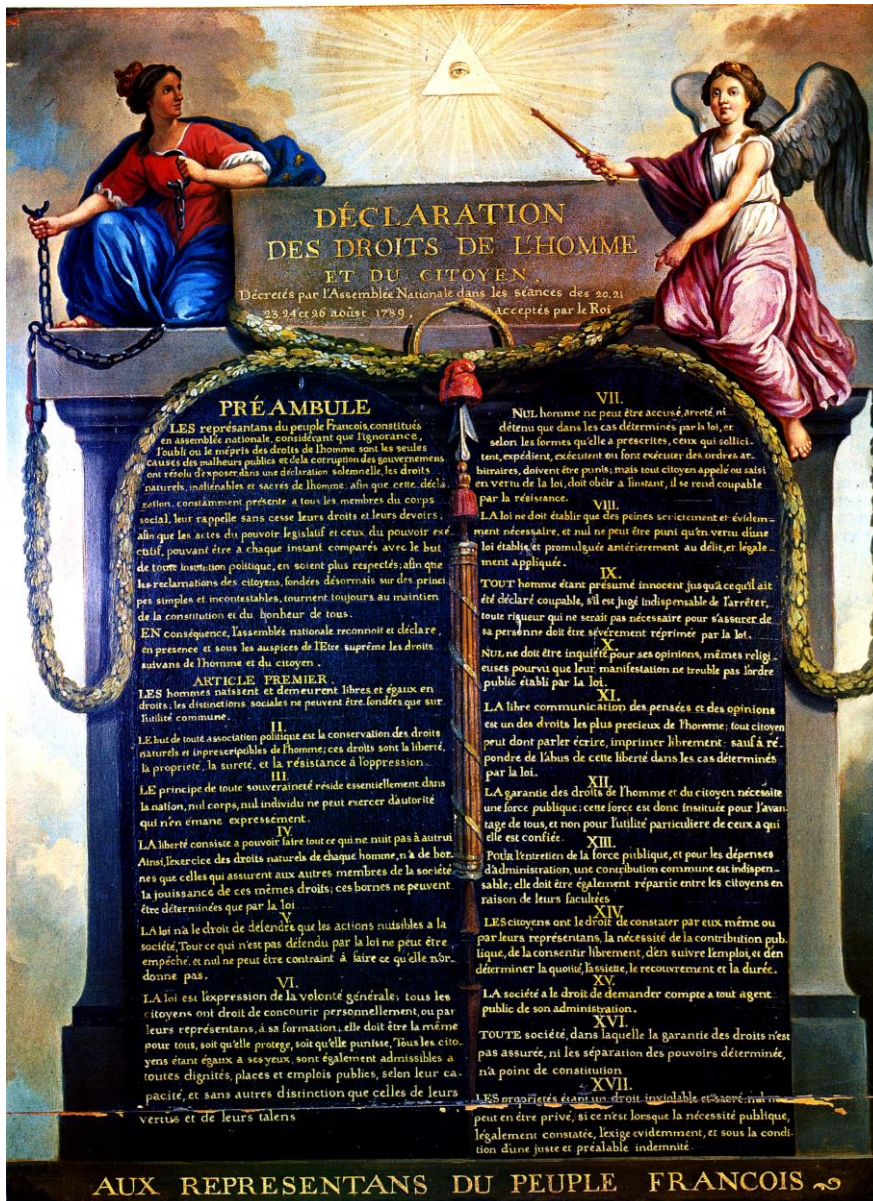 DÉCLARATION
DES DROITS DE L'HOMME
ET DU CITOYEN,
Décretés par l'Assemblée Nationale dans les séances des 20, 21
23, 24 et 26 aoûst 1789, acceptés par le Roi
PRÉAMBULE
LES représantans du peuple François, constitués
en assemblée nationale, considérant que l'ignorance,
l'oubli ou le mépris des droits de l'homme sont les seules
causes des malheurs publics et de la corruption des gouvernemens
ont résolu d'exposer, dans une déclaration solemnelle, les droits
naturels, inaliénables et sacrés de l'homme; afin que cette décla
ration, constamment présente a tous les membres du corps
social, leur rappelle sans cesse leurs droits et leurs devoirs;
afin que les actes du pouvoir legislatif et ceux du pouvoir exé
cutif, pouvant être a chaque instant comparés avec le but
de toute institution politique, en soient plus respectés; afin que
les reclamations des citoyens, fondées désormais sur des princi
pes simples et incontestables, tournent toujours au maintien
de la constitution et du bonheur de tous.
EN conséquence, l'assemblée nationale reconnoit et déclare,
en presence et sous les auspices de l'Etre suprême les droits
suivans de l'homme et du citoyen.
ARTICLE PREMIER.
LES hommes naissent et demeurent libres et égaux en
droits; les distinctions sociales ne peuvent être fondées que sur
l'utilité commune.
II.
LE but de toute association politique est la conservation des droits
naturels et inprescriptibles de l'homme; ces droits sont la liberté,
la propriete, la sureté, et la résistance à l'oppression.
III.
LE principe de toute souveraineté réside essentiellement dans
la nation, nul corps, nul individu ne peut exercer d'autorité
qui n'en émane expressément.
IV.
LA liberté consiste a pouvoir faire tout ce qui ne nuit pas à autrui
Ainsi, l'exercice des droits naturels de chaque homme, n'a de bor_
nes que celles qui assurent aux autres membres de la société
la jouissance de ces mêmes droits; ces bornes ne peuvent
être déterminées que par la loi
V.
LA loi n'a le droit de défendre que les actions nuisibles a la
société, Tout ce qui n'est pas défendu par la loi ne peut être
empêché, et nul ne peut être contraint à faire ce qu'elle n'or_
donne pas.
VI.
LA loi est l'expression de la volonté générale; tous les
citoyens ont droit de concourir personnellement, ou par
leurs représentans, à sa formation; elle doit être la même
pour tous, soit qu'elle protege, soit qu'elle punisse, Tous les cito_
yens étant égaux à ses yeux, sont également admissibles a
toutes dignités, places et emplois publics, selon leur ca_
pacité, et sans autres distinction que celles de leurs
vertus et de leurs talens
VII.
NUL homme ne peut être accusé, arreté, ni
détenu que dans les cas déterminés par la loi, et
selon les formes qu'elle a prescrites, ceux qui sollici_
tent, expédient, exécutent ou font exécuter des ordres ar_
bitraires, doivent être punis; mais tout citoyen appelé ou saisi
en vertu de la loi, doit obéir a l'instant, il se rend coupable
par la résistance.
VIII.
LA loi ne doit établir que des peines strictement et évidem_
ment nécessaire, et nul ne peut être puni qu'en vertu d'une
loi établie et promulguée antérierement au délit, et légale_
ment appliquée.
IX.
TOUT homme étant présumé innocent jusqu'à ce qu'il ait
été déclaré coupable, s'il est jugé indispensable de l'arrêter,
toute rigueur qui ne serait pas nécessaire pour s'assurer de
sa personne doit être sévèrement réprimée par la loi.
X.
NUL ne doit être inquiété pour ses opinions, mêmes religi_
euses pourvu que leur manifestation ne trouble pas l'ordre
public établi par la loi.
XI.
LA libre communication des pensées et des opinions
est un des droits les plus precieux de l'homme; tout citoyen
peut dont parler écrire, imprimer librement; sauf à ré_
pondre de l'abus de cette liberté dans les cas déterminés
par la loi.
XII.
LA garantie des droits de l'homme et du citoyen nécessite
une force publique; cette force est donc instituée pour l'avan_
tage de tous, et non pour l'utilité particuliere de ceux a qui
elle est confiée.
XIII.
POUR l'entretien de la force publique, et pour les dépenses
d'administration, une contribution commune est indispen_
sable; elle doit être également répartie entre les citoyens en
raison de leurs facultées
XIV.
LES citoyens ont le droit de constater par eux même ou
par leurs représentans, la nécessité de la contribution pub_
lique, de la consentir librement, d'en suivre l'emploi, et d'en
déterminer la quotité, l'assiette, le recouvrement et la durée.
XV.
LA société a le droit de demander compte a tout agent
public de son administration.
XVI.
TOUTE société, dans laquelle la garantie des droits n'est
pas assurée, ni les séparation des pouvoirs déterminée,
n'a point de constitution
XVII.
LES propriétés étant un droit inviolable et sacré, nul ne
peut en être privé, si ce n'est lorsque la nécessité publique,
légalement constatée, l'exige evidemment, et sous la condi_
tion d'une juste et préalable indemnité.
AUX REPRESENTANS DU PEUPLE FRANCOIS